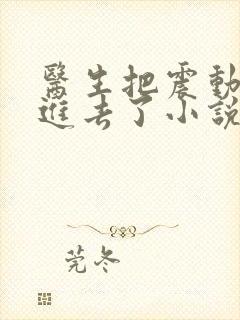 醫生把震動
進去了小說
莞冬